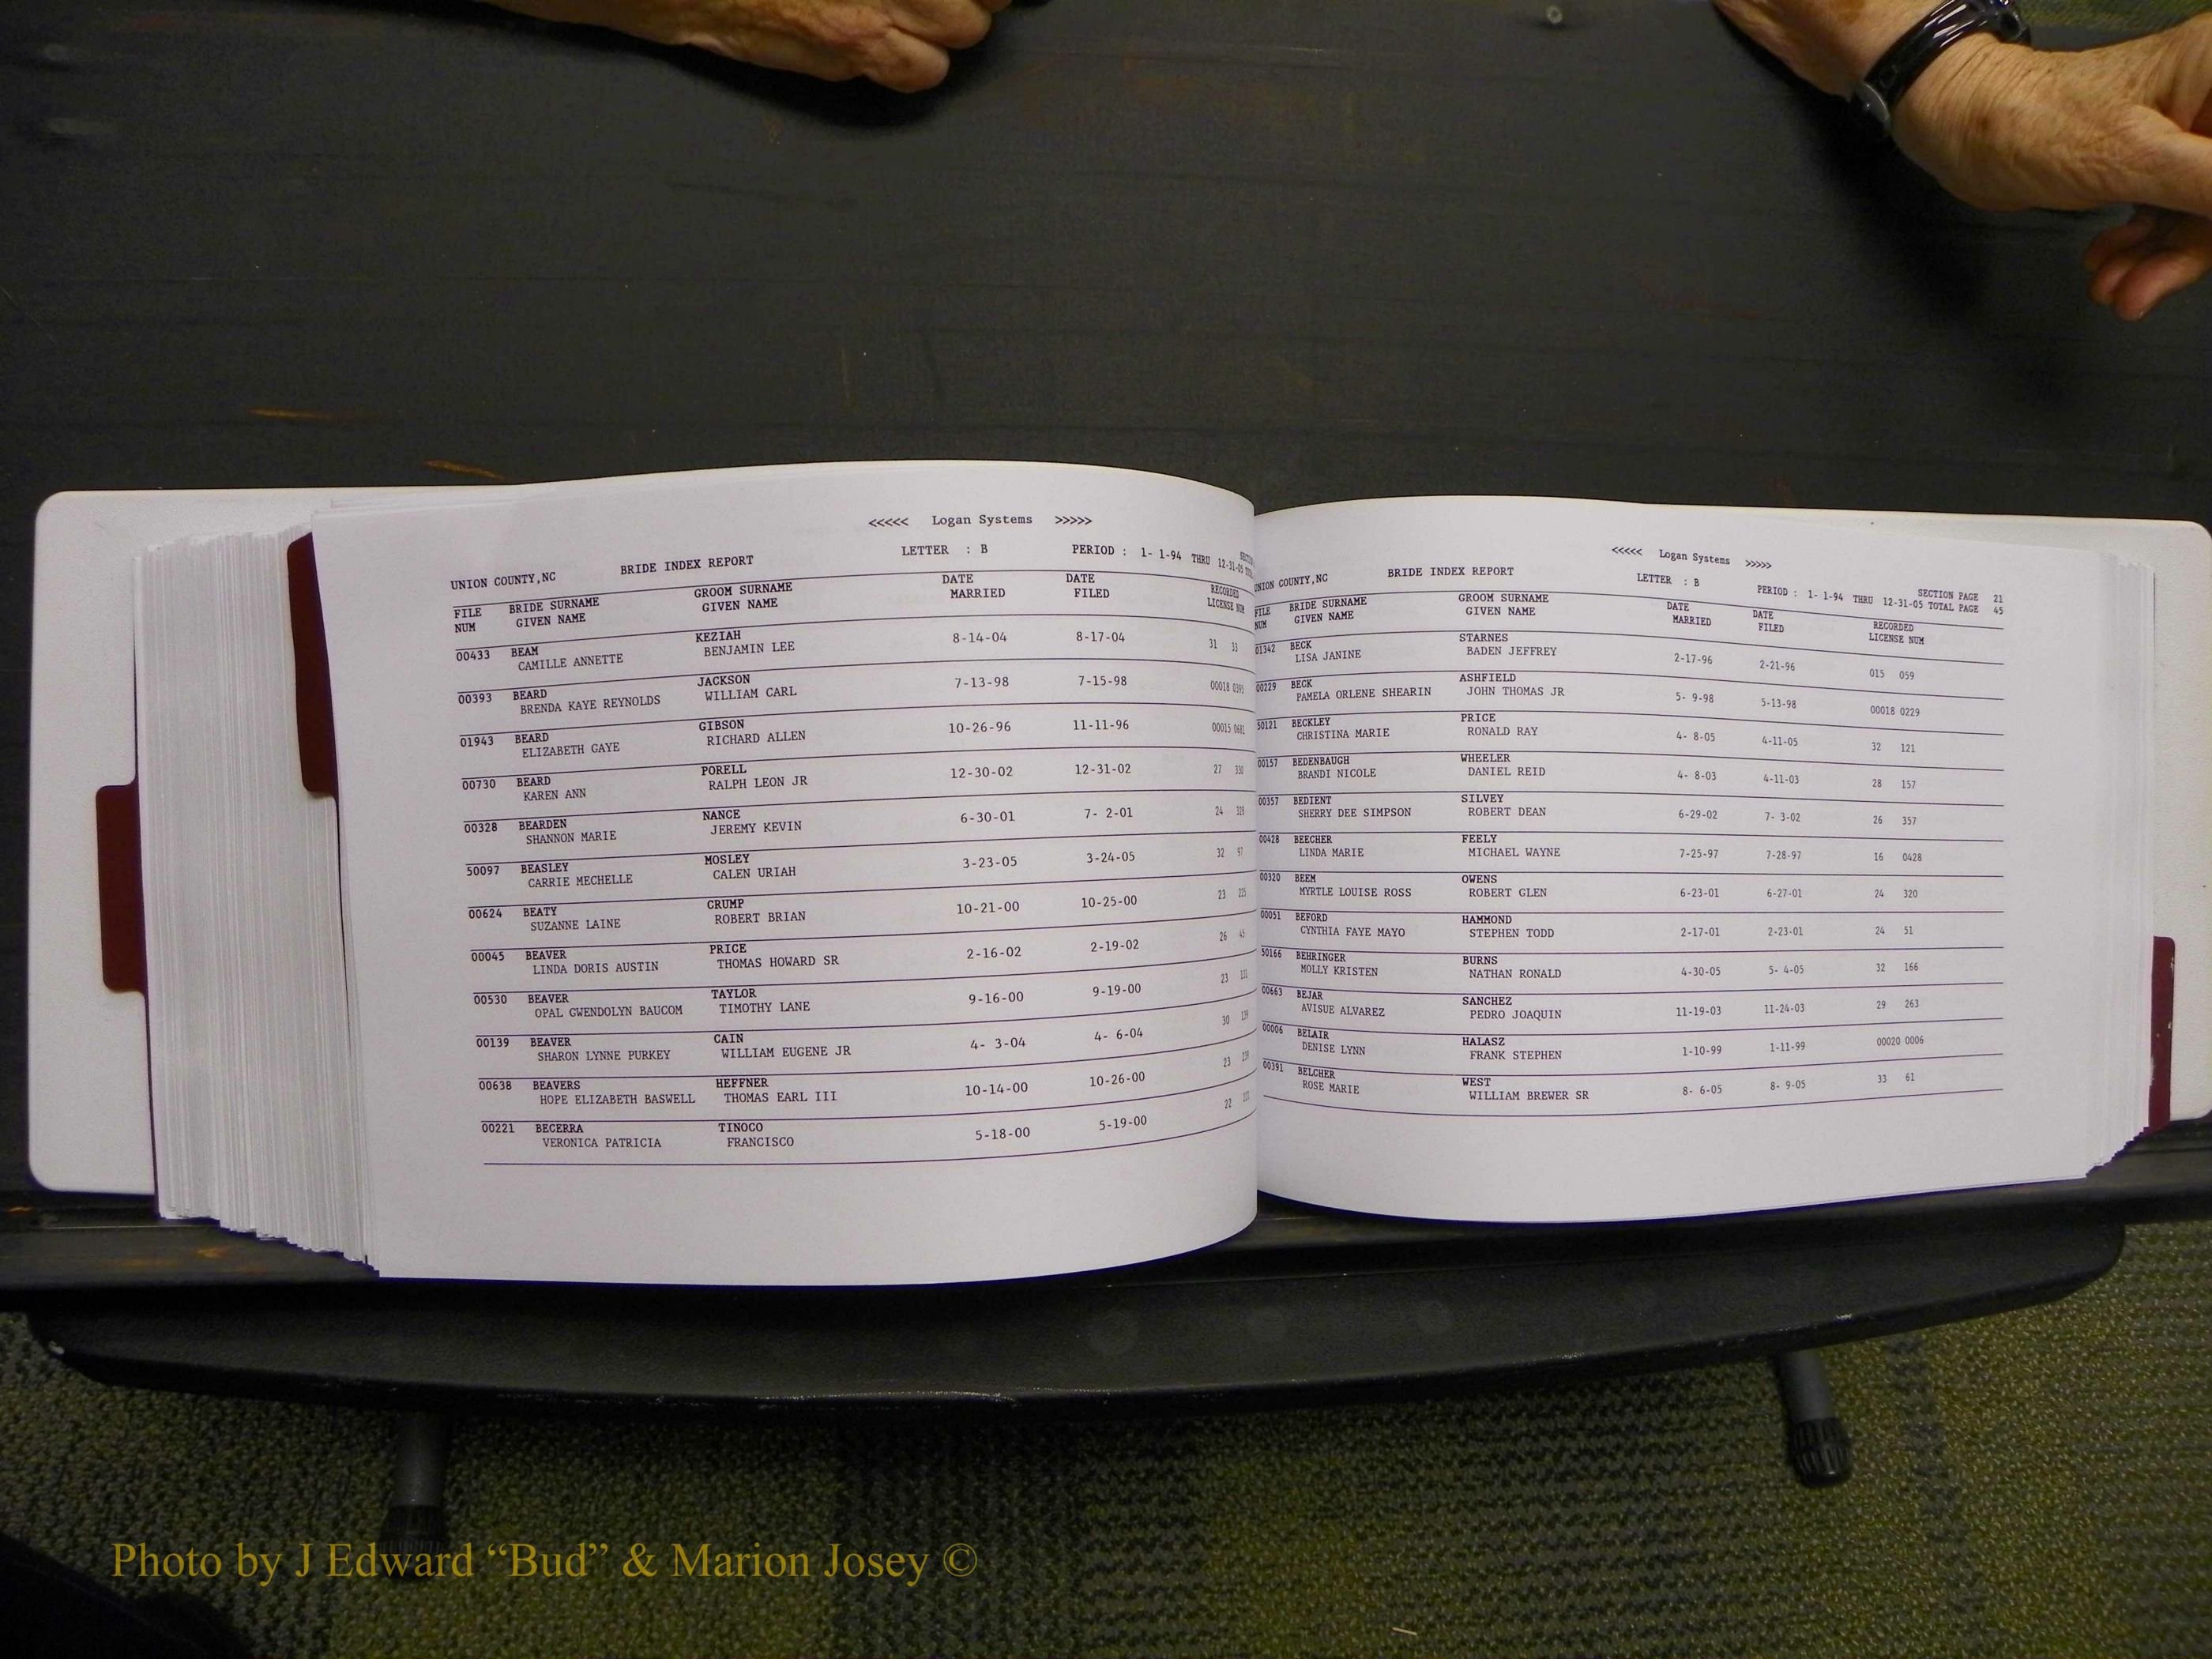 <<<<< Logan Systems >>>>>
UNION COUNTY,NC BRIDE INDEX REPORT LETTER : B PERIOD : 1- 1-94 THRU 12-31-05
FILE BRIDE SURNAME GROOM SURNAME DATE DATE RECORDED
NUM GIVEN NAME GIVEN NAME MARRIED FILED LICENSE NUM
00433 BEAM KEZIAH 8-14-04 8-17-04 31 33
CAMILLE ANNETTE BENJAMIN LEE
00393 BEARD JACKSON 7-13-98 7-15-98 00018
BRENDA KAYE REYNOLDS WILLIAM CARL
01943 BEARD GIBSON 10-26-96 11-11-96 00015
ELIZABETH GAYE RICHARD ALLEN
00730 BEARD PORELL 12-30-02 12-31-02 27
KAREN ANN RALPH LEON JR
00328 BEARDEN NANCE 6-30-01 7- 2-01 24
SHANNON MARIE JEREMY KEVIN
50097 BEASLEY MOSLEY 3-23-05 3-24-05 32 97
CARRIE MECHELLE CALEN URIAH
00624 BEATY CRUMP 10-21-00 10-25-00 23
SUZANNE LAINE ROBERT BRIAN
00045 BEAVER PRICE 2-16-02 2-19-02 26 45
LINDA DORIS AUSTIN THOMAS HOWARD SR
00530 BEAVER TAYLOR 9-16-00 9-19-00 23
OPAL GWENDOLYN BAUCOM TIMOTHY LANE
00139 BEAVER CAIN 4- 3-04 4- 6-04 30
SHARON LYNNE PURKEY WILLIAM EUGENE JR
00638 BEAVERS HEFFNER 10-14-00 10-26-00 23
HOPE ELIZABETH BASWELL THOMAS EARL III
00221 BECERRA TINOCO 5-18-00 5-19-00 22
VERONICA PATRICIA FRANCISCO
<<<<< Logan Systems >>>>>
UNION COUNTY,NC BRIDE INDEX REPORT LETTER : B SECTION PAGE 21
PERIOD : 1- 1-94 THRU 12-31-05 TOTAL PAGE 45
FILE BRIDE SURNAME GROOM SURNAME DATE DATE RECORDED
NUM GIVEN NAME GIVEN NAME MARRIED FILED LICENSE NUM
01342 BECK STARNES 2-17-96 2-21-96 015 059
LISA JANINE BADEN JEFFREY
00229 BECK ASHFIELD 5- 9-98 5-13-98 00018 0229
PAMELA ORLENE SHEARIN JOHN THOMAS JR
50121 BECKLEY PRICE 4- 8-05 4-11-05 32 121
CHRISTINA MARIE RONALD RAY
00157 BEDENBAUGH WHEELER 4- 8-03 4-11-03 28 157
BRANDI NICOLE DANIEL REID
00357 BEDIENT SILVEY 6-29-02 7- 3-02 26 357
SHERRY DEE SIMPSON ROBERT DEAN
00428 BEECHER FEELY 7-25-97 7-28-97 16 0428
LINDA MARIE MICHAEL WAYNE
00320 BEEM OWENS 6-23-01 6-27-01 24 320
MYRTLE LOUISE ROSS ROBERT GLEN
00051 BEFORD HAMMOND 2-17-01 2-23-01 24 51
CYNTHIA FAYE MAYO STEPHEN TODD
50166 BEHRINGER BURNS 4-30-05 5- 4-05 32 166
MOLLY KRISTEN NATHAN RONALD
00663 BEJAR SANCHEZ 11-19-03 11-24-03 29 263
AVISUE ALVAREZ PEDRO JOAQUIN
00006 BELAIR HALASZ 1-10-99 1-11-99 00020 0006
DENISE LYNN FRANK STEPHEN
00391 BELCHER WEST 8- 6-05 8- 9-05 33 61
ROSE MARIE WILLIAM BREWER SR
Photo by J Edward “Bud” & Marion Josey ©